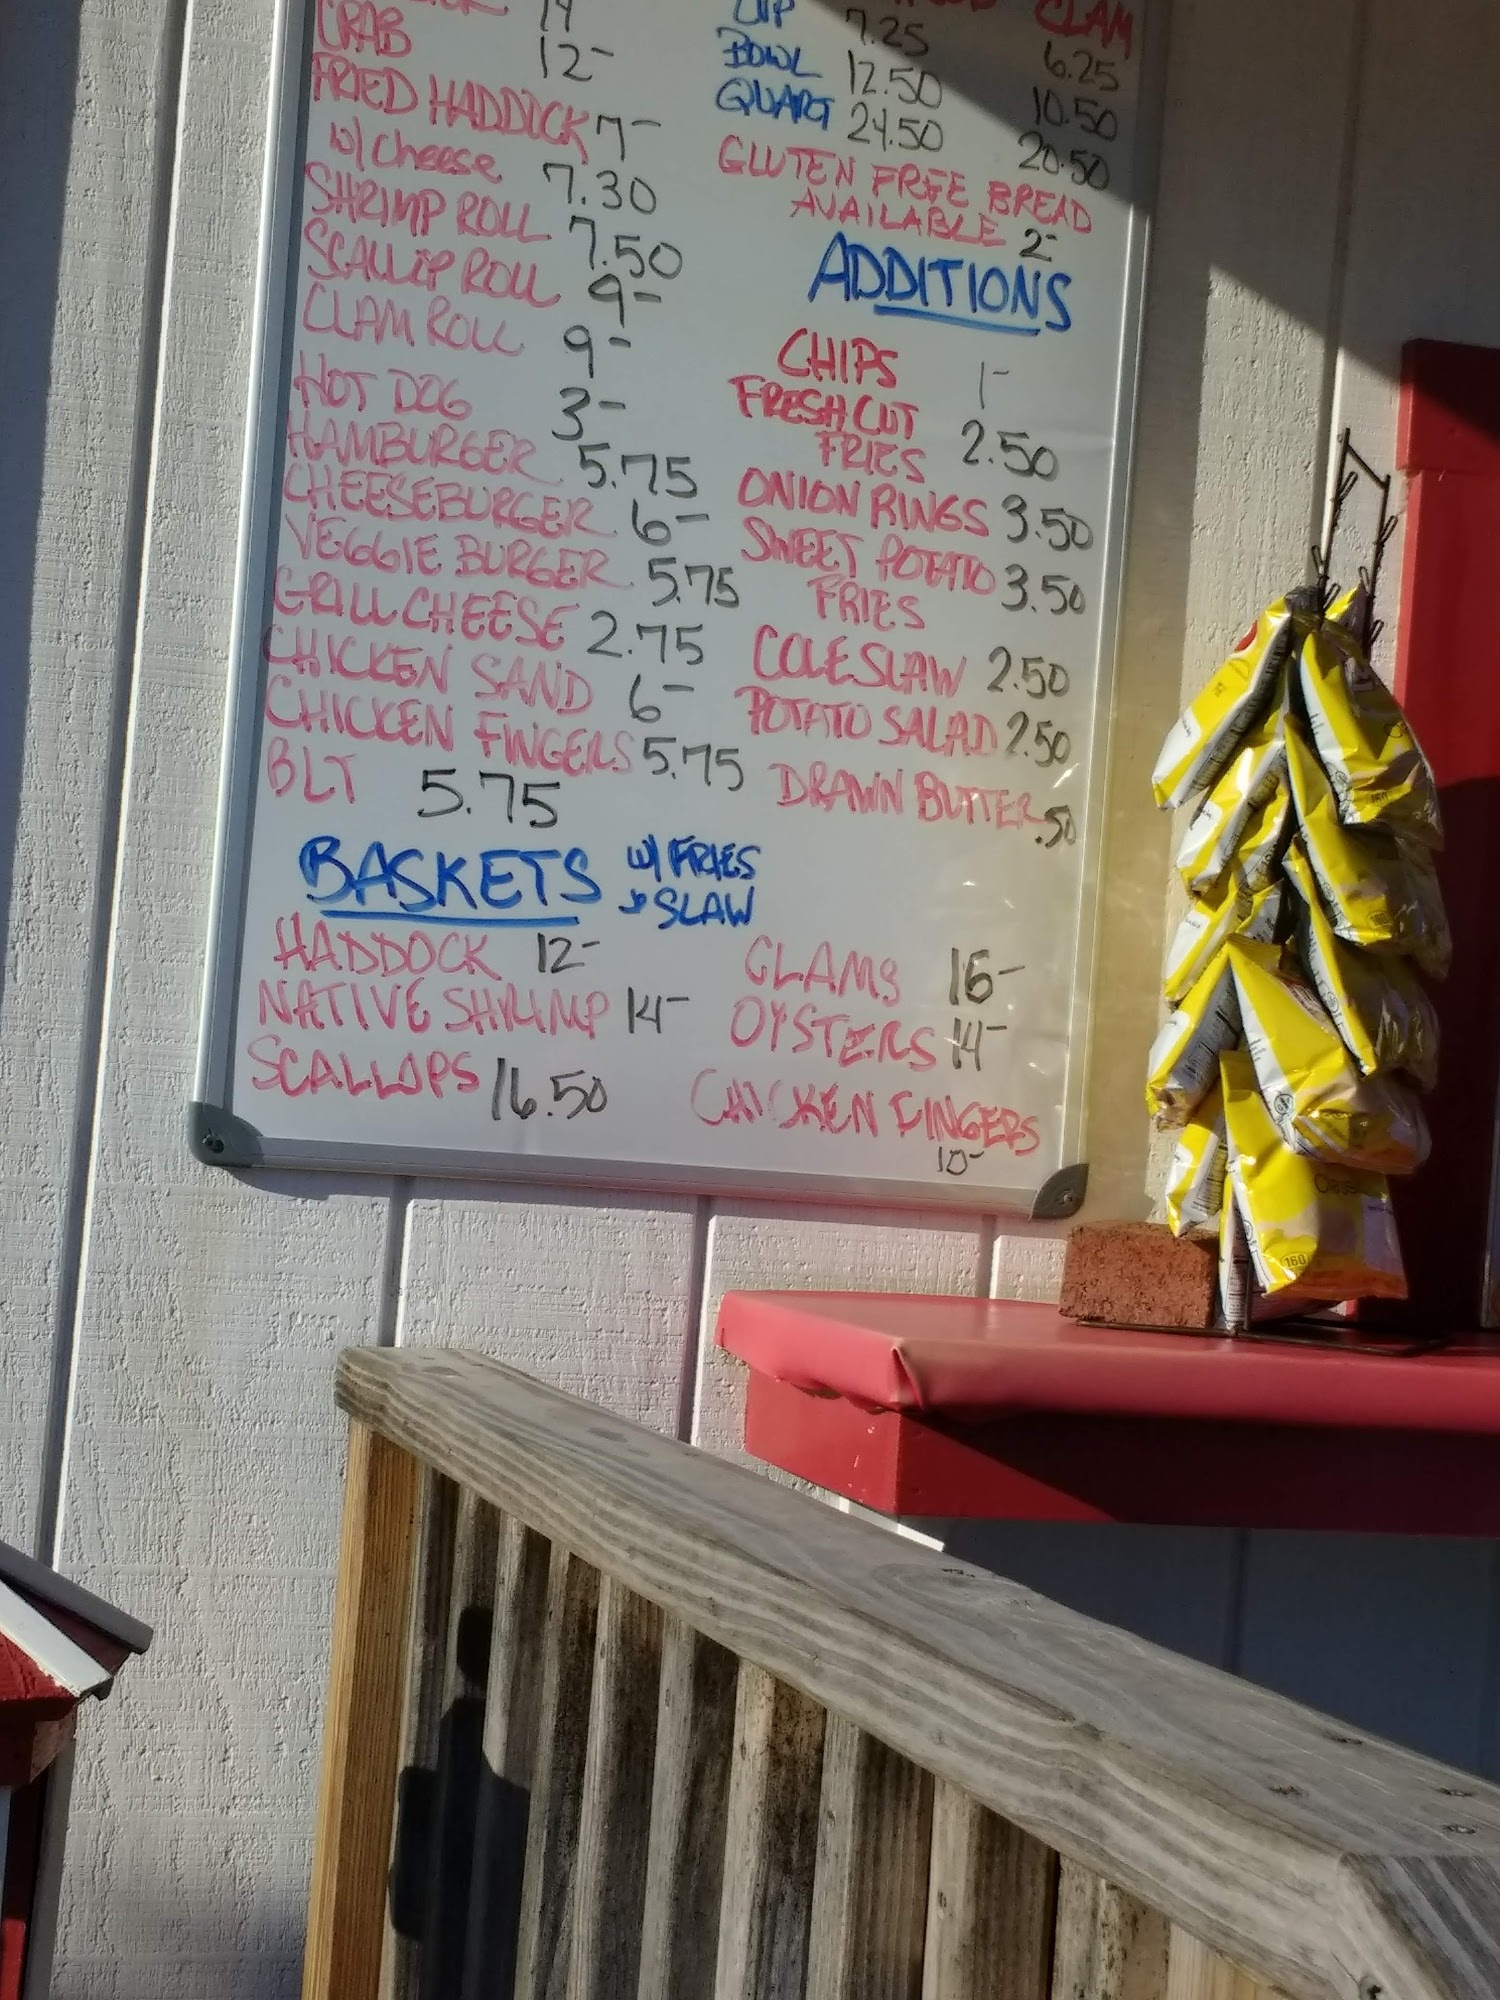 14
CRAB 12-
FRIED HADDOCK 7-
w/ cheese 7.30
SHRIMP ROLL 7.50
SCALLOP ROLL 9-
CLAM ROLL 9-
HOT DOG 3-
HAMBURGER 5.75
CHEESEBURGER 6-
VEGGIE BURGER 5.75
GRILL CHEESE 2.75
CHICKEN SAND 6-
CHICKEN FINGERS 5.75
BLT 5.75
CLAM
CUP 7.25 6.25
BOWL 12.50 10.50
QUART 24.50 20.50
GLUTEN FREE BREAD
AVAILABLE 2-
ADDITIONS
CHIPS 1-
FRESH CUT
FRIES 2.50
ONION RINGS 3.50
SWEET POTATO
FRIES 3.50
COLESLAW 2.50
POTATO SALAD 2.50
DRAWN BUTTER .50
BASKETS w/ FRIES
& SLAW
HADDOCK 12-
NATIVE SHRIMP 14-
SCALLOPS 16.50
CLAMS 16-
OYSTERS 14-
CHICKEN FINGERS
10-
160